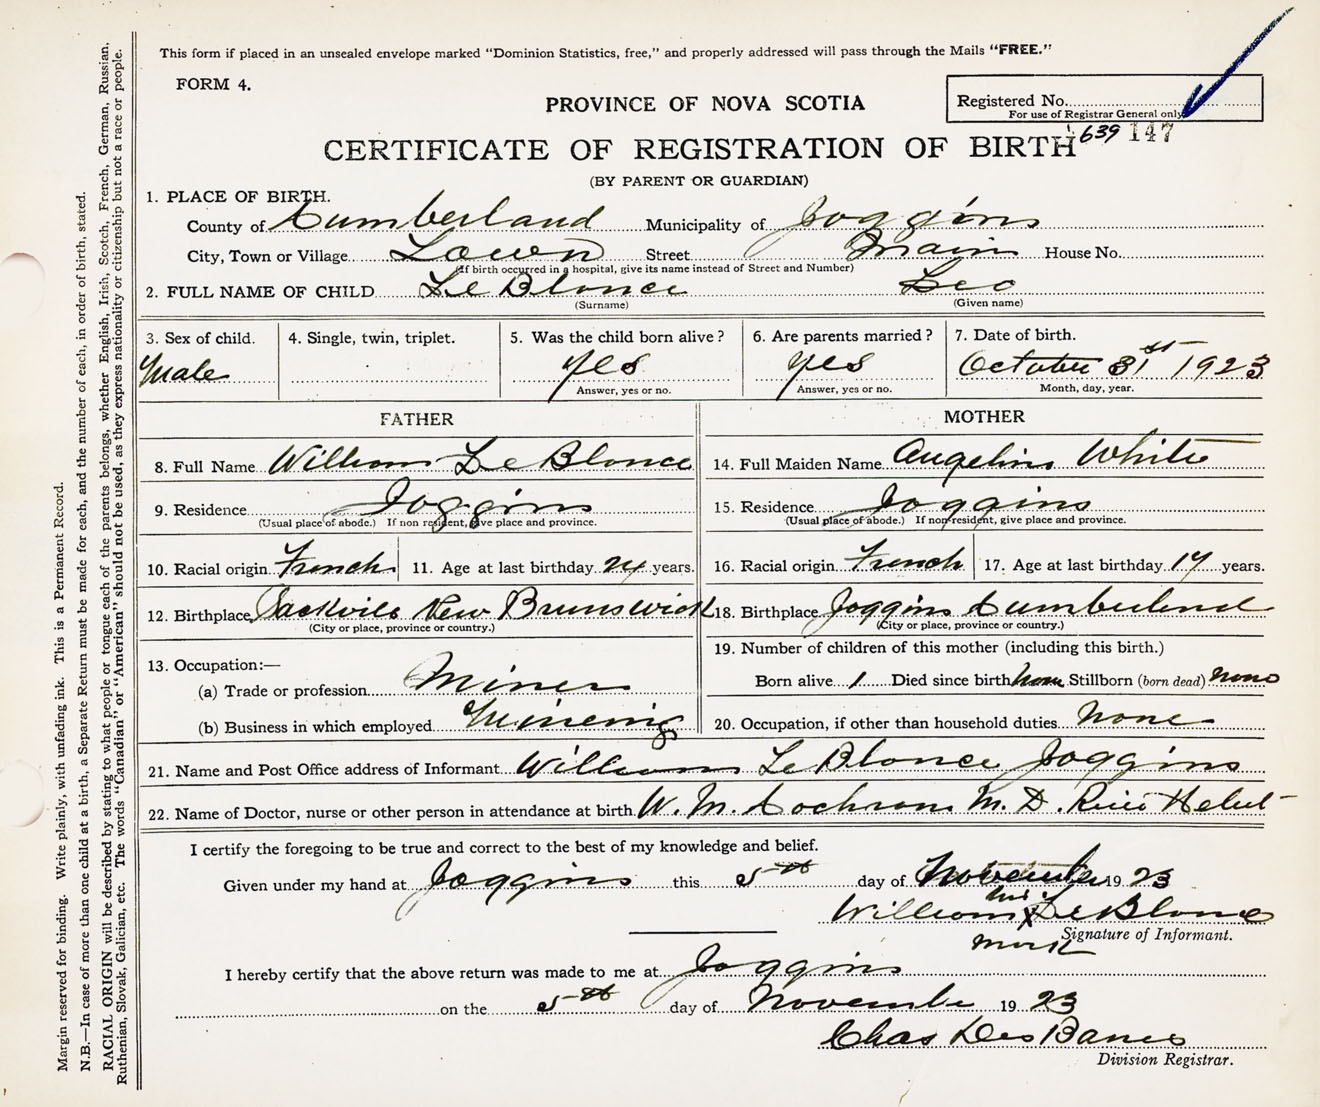 This form if placed in an unsealed envelope marked "Dominion Statistics, free," and properly addressed will pass through the Mails "FREE."
FORM 4.
PROVINCE OF NOVA SCOTIA
Registered No.
For use of Registrar General only
639 147
CERTIFICATE OF REGISTRATION OF BIRTH
(BY PARENT OR GUARDIAN)
1. PLACE OF BIRTH.
County of Cumberland Municipality of Joggins
City, Town or Village Town Street Main House No.
(If birth occurred in a hospital, give its name instead of Street and Number)
2. FULL NAME OF CHILD Le Blance Leo
(Surname) (Given name)
3. Sex of child. 4. Single, twin, triplet. 5. Was the child born alive? 6. Are parents married? 7. Date of birth.
Male yes yes October 31st 1923
Answer, yes or no. Answer, yes or no. Month, day, year.
FATHER MOTHER
8. Full Name William Le Blance 14. Full Maiden Name Angelins White
9. Residence Joggins 15. Residence Joggins
(Usual place of abode.) If non resident, give place and province. (Usual place of abode.) If non-resident, give place and province.
10. Racial origin French 11. Age at last birthday 24 years. 16. Racial origin French 17. Age at last birthday years.
12. Birthplace Sackvile New Brunswick 18. Birthplace Joggins Cumberlend
(City or place, province or country.) (City or place, province or country.)
13. Occupation:— 19. Number of children of this mother (including this birth.)
(a) Trade or profession Miner Born alive 1 Died since birth None Stillborn (born dead) None
(b) Business in which employed Minening 20. Occupation, if other than household duties None
21. Name and Post Office address of Informant William Le Blance Joggins
22. Name of Doctor, nurse or other person in attendance at birth W. M. Cochran M. D. River Hebert
I certify the foregoing to be true and correct to the best of my knowledge and belief.
Given under my hand at Joggins this 5th day of November 1923
William his X Le Blance
mark
Signature of Informant.
I hereby certify that the above return was made to me at Joggins
on the 5th day of November 1923
Chas Des Banes
Division Registrar.
Margin reserved for binding. Write plainly, with unfading ink. This is a Permanent Record.
N.B.—In case of more than one child at a birth, a Separate Return must be made for each, and the number of each, in order of birth, stated.
RACIAL ORIGIN will be described by stating to what people or tongue each of the parents belongs, whether English, Irish, Scotch, French, German, Russian,
Ruthenian, Slovak, Galician, etc. The words "Canadian" or "American" should not be used, as they express nationality or citizenship but not a race or people.